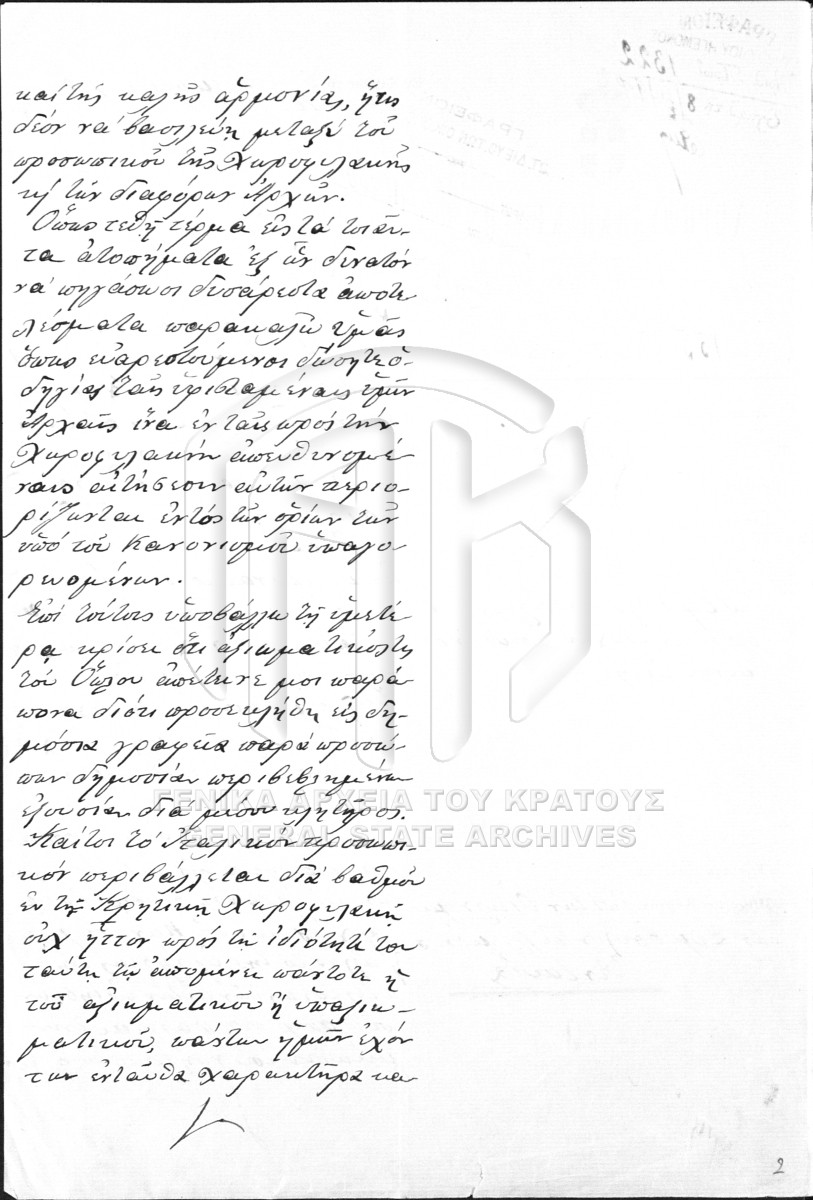 καὶ τῆς καλῆς ἁρμονίας, ἥτις
δέον νὰ βασιλεύῃ μεταξὺ τοῦ
προσωπικοῦ τῆς Χωροφυλακῆς
κὶ τῶν διαφόρων Ἀρχῶν.
Ὅπως τεθῇ τέρμα εἰς τὰ τοιαῦ-
τα ἀτοπήματα ἐξ ὧν δυνατόν
νὰ πηγάσωσι δυσάρεστα ἀποτε-
λέσματα παρακαλῶ ὑμᾶς
ὅπως εὐαρεστούμενοι δώσητε ὁ-
δηγίας ταῖς ὑφισταμέναις ὑμῖν
Ἀρχαῖς ἵνα ἐν ταῖς πρὸς τὴν
Χωροφυλακὴν ἀπευθυνομέ-
ναις αἰτήσεσιν αὐτῶν περιο-
ρίζωνται ἐντὸς τῶν ὁρίων τῶν
ὑπὸ τοῦ Κανονισμοῦ ὑπαγο-
ρευομένων.
Ἐπὶ τούτοις ὑποβάλλω τῇ ὑμετέ-
ρᾳ κρίσει ὅτι ἀξιωματικός τις
τοῦ Ὅπλου ἀπέτεινέ μοι παρά-
πονα διότι προσεκλήθη εἰς δη-
μόσια γραφεῖα παρὰ προσώ-
πων δημοσίαν περιβεβλημένων
ἐξουσίαν διὰ μέσου κλητῆρος.
Καίτοι τὸ Ἰταλικὸν προσωπι-
κὸν περιβάλλεται διὰ βαθμῶν
ἐν τῇ Κρητικῇ Χωροφυλακῇ
οὐχ ἧττον πρὸς τῇ ἰδιότητί του
ταύτῃ τῷ ἀπομένει πάντοτε ἡ
τοῦ ἀξιωματικοῦ ἢ ὑπαξιω-
ματικοῦ, πάντων ἡμῶν ἐχόν-
των ἐνταῦθα χαρακτῆρα κα-
1322
8
ΓΕΝΙΚΑ ΑΡΧΕΙΑ ΤΟΥ ΚΡΑΤΟΥΣ
GENERAL STATE ARCHIVES
2